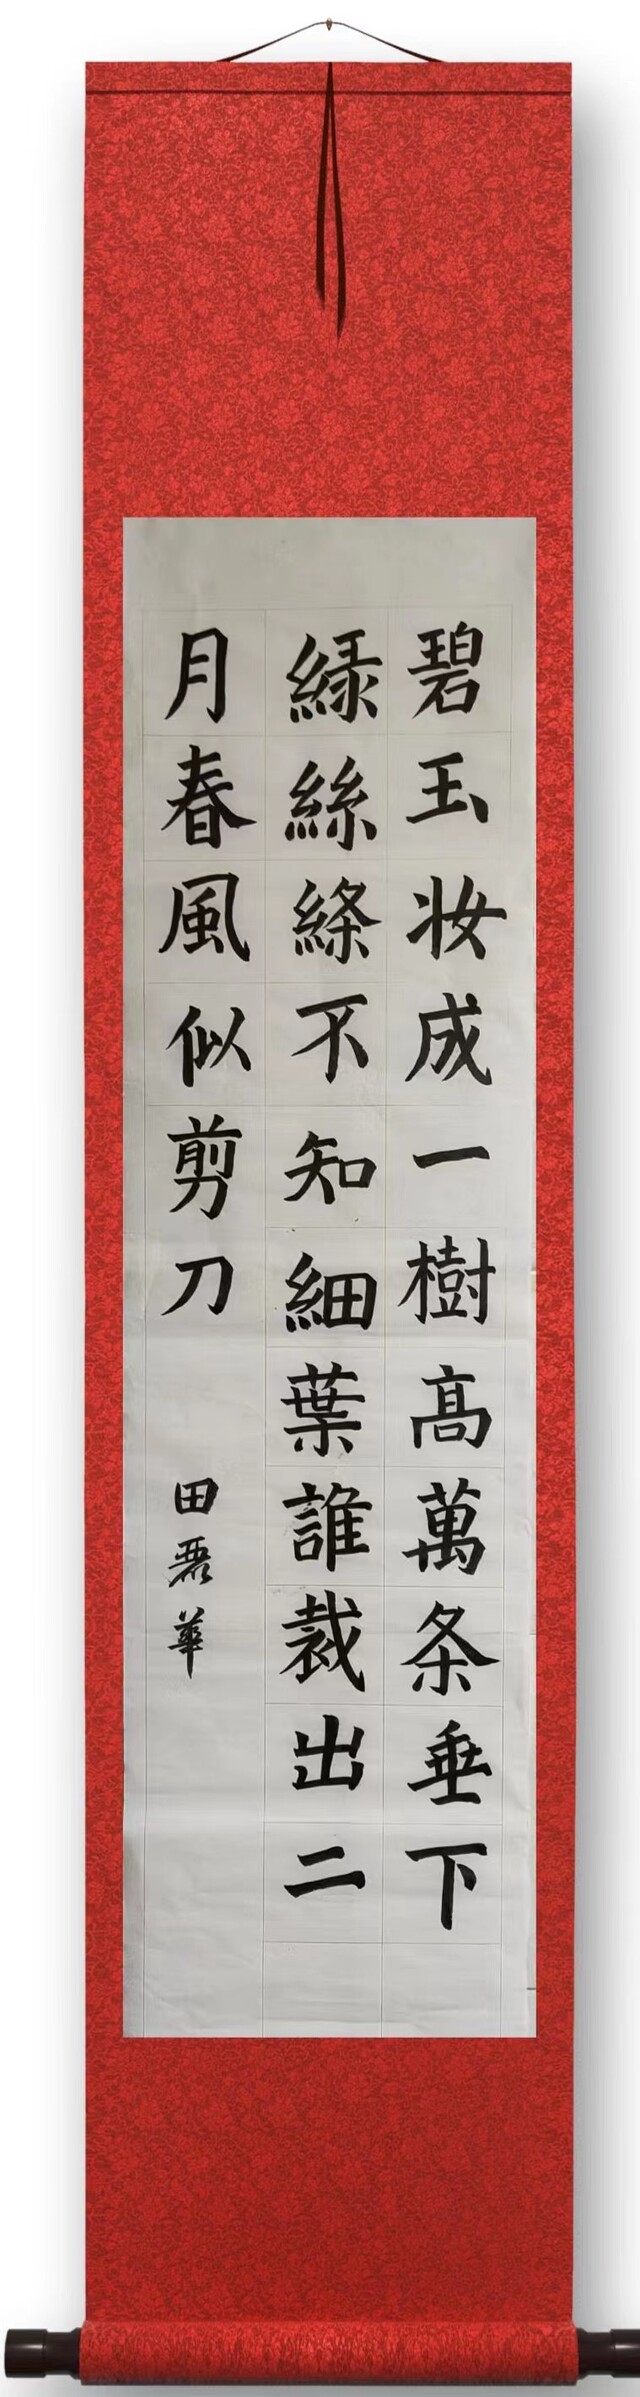 碧玉妆成一樹髙萬条垂下
緑絲絛不知細葉誰裁出二
月春風似剪刀
田麗華